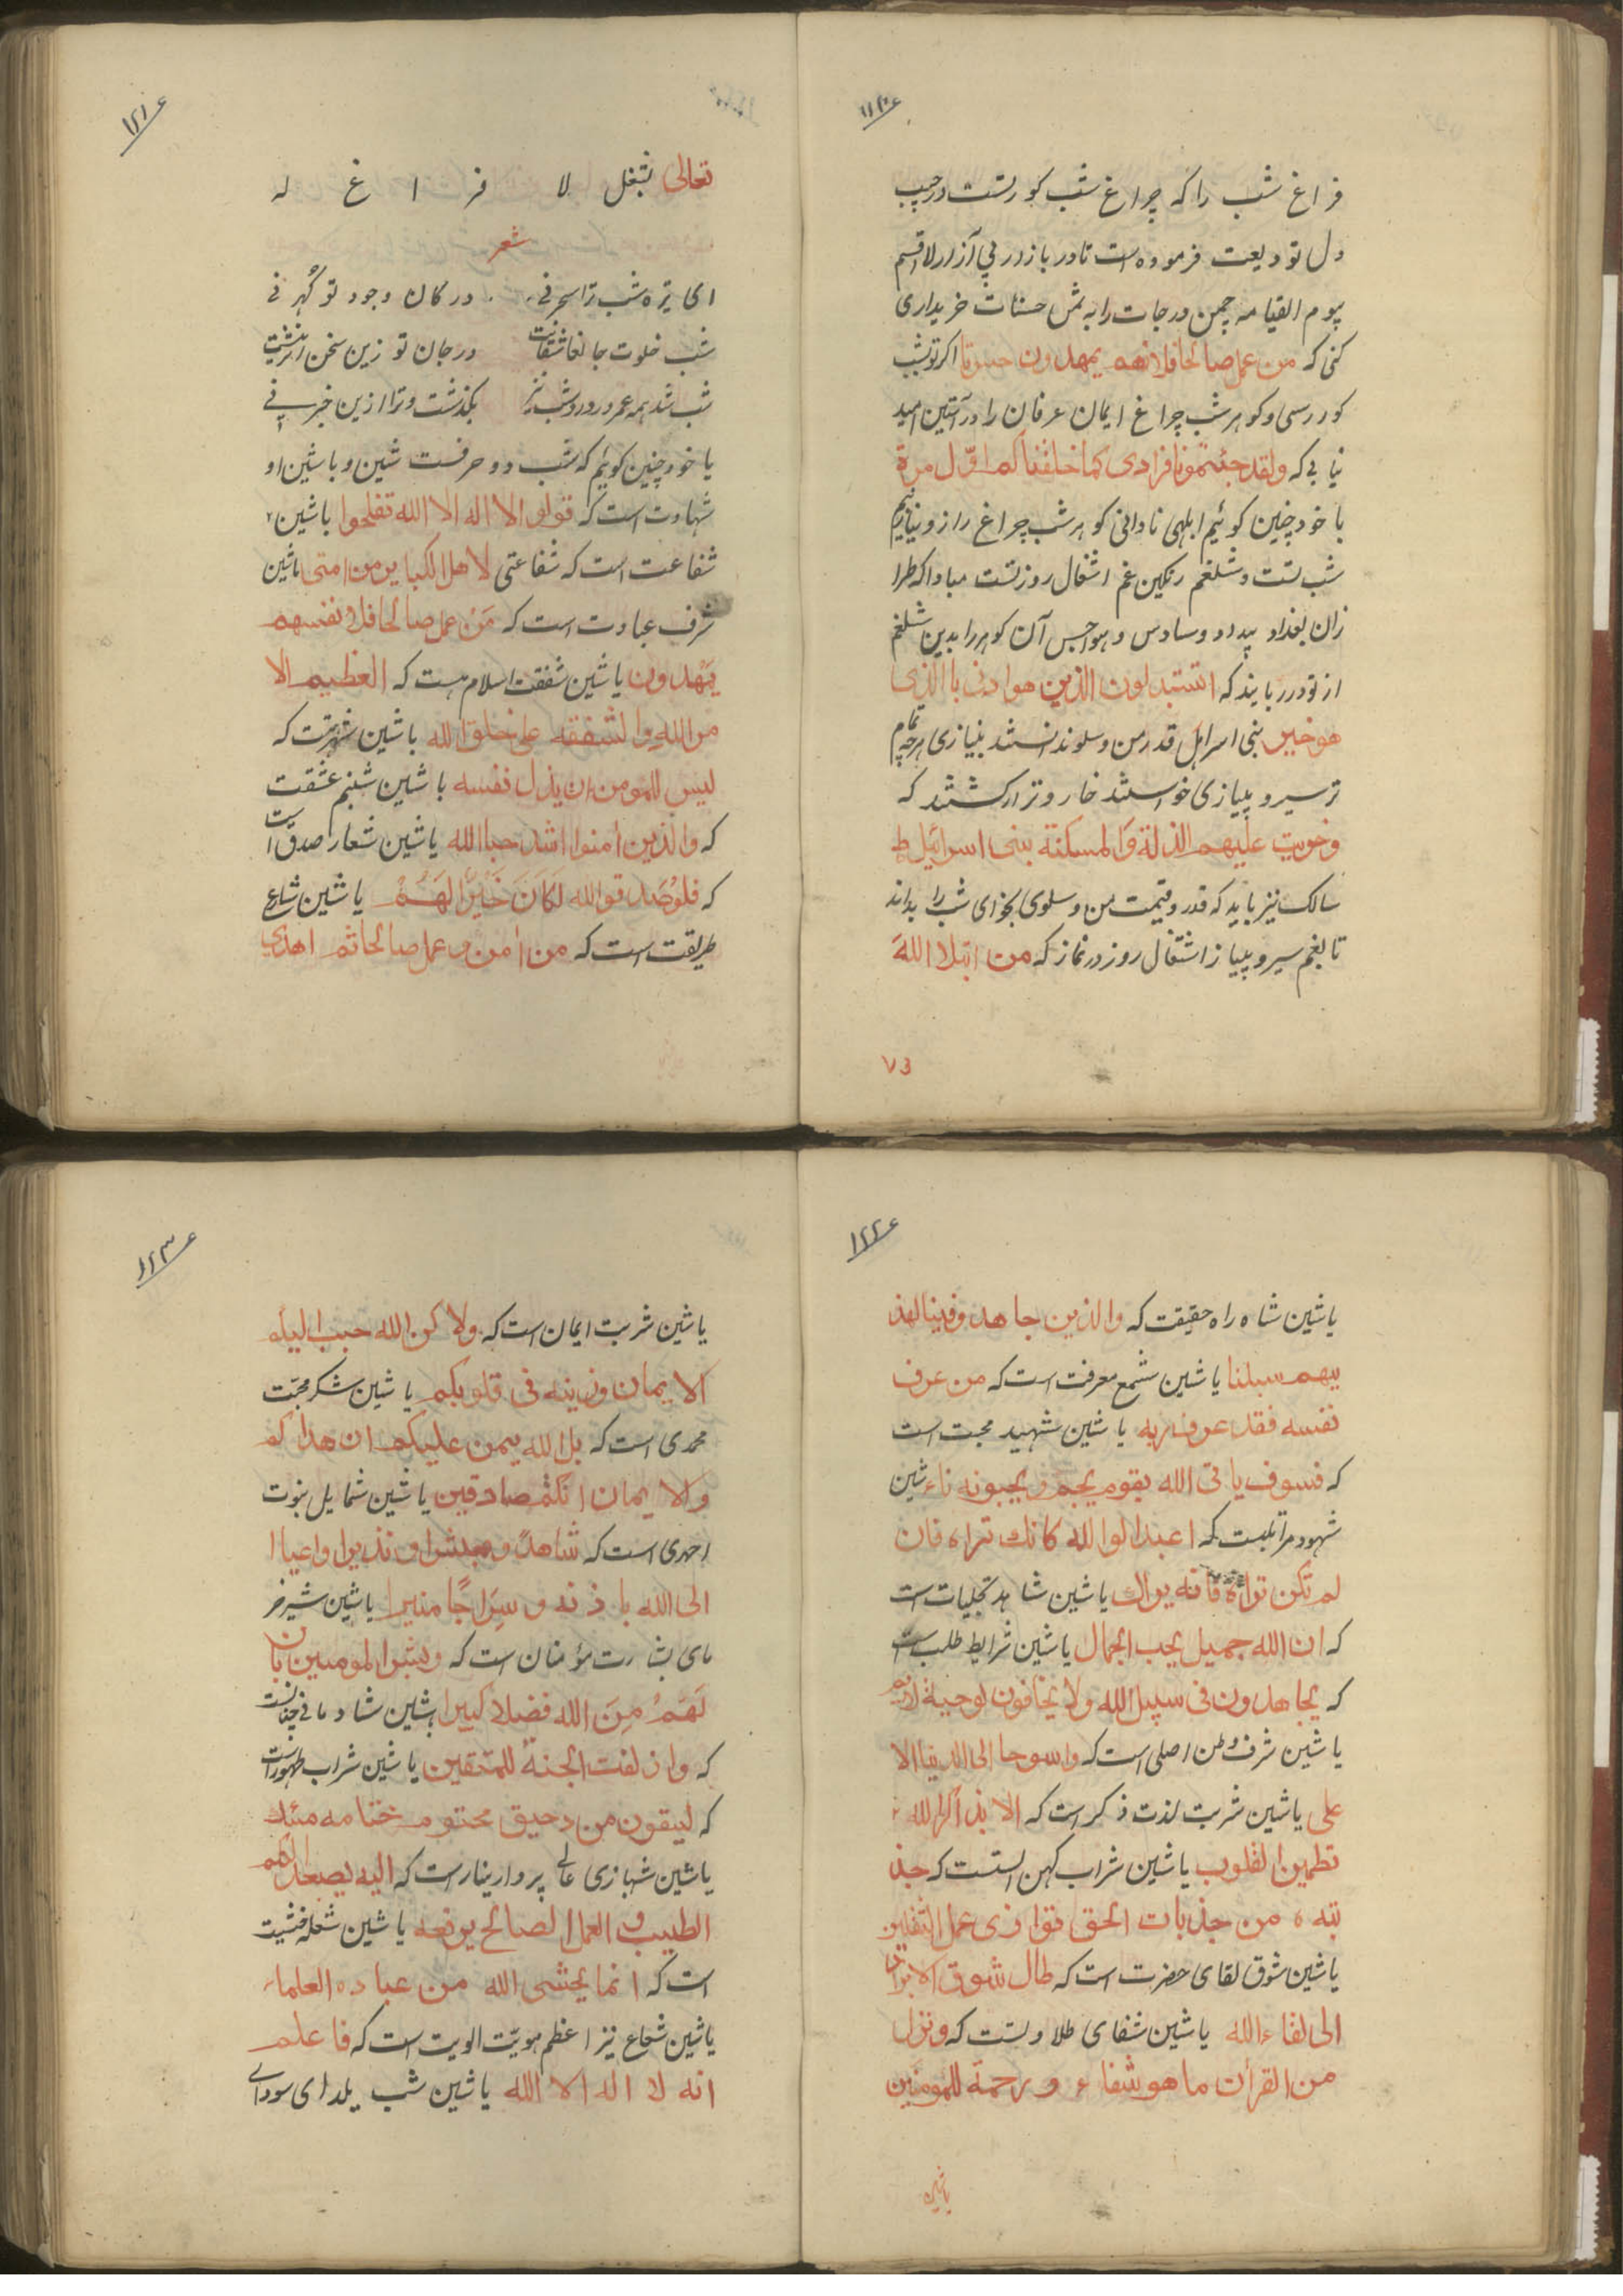 ۱۲۰۶
فراغ شب را که چراغ شب کورتست در جیب
دل تو ودیعت فرموده است تا در بازار لا اقسم
بیوم القیامه چمن درجات را به ثمن حسنات خریداری
کنی که من عمل صالحا فلانفسهم یمهدون حسرتا اکر تو بشب
کور رسی و کوهر شب چراغ ایمان عرفان را در آستین امید
نیابی که ولقد جئتمونا فرادی کما خلقناکم اوّل مرة
با خود چنین کوئیم ابلهی نادانی کوهر شب چراغ راز و نیازیم
شب تست و شلغم رنکین غم اشغال روز تست مبادا که طرا
زان بغداد پیدد وساوس و هواجس آن کوهر را بدین شلغم
از تو در ربایند که اتستبدلون الذین هوادنی باالذی
هو خیر بنی اسرایل قدر من و سلوند انستند بنیازی هرچه تمام
تر سیر و پیازی خواستند خار و زار کشتند که
وضربت علیهم الذلة والمسکنة بنی اسرائیل ط
سالک نیز باید که قدر و قیمت من و سلوی نجوای شب را بداند
تا بغم سیر و پیاز اشتغال روز در نماز که من ابتلا الله
۷۵
۱۲۱۶
تعالی بشغل لا فر ا غ له
شعر
ای تیره شب ترا سحر نی در کان وجود تو کُهر نی
شب خلوت جا نعاشقانست در جان تو زین سخن اثر نیست
شب شد همه عمر و روز و شب نیز بکذشت و ترا ازین خبر نی
یا خود چنین کوئیم که شب دو حرفست شین و با شین او
شهادت است که قولو الا اله الا الله تفلحوا یا شین
شفاعت است که شفاعتی لاهل الکبایر من امتی یا شین
شرف عبادت است که مَنْ عمل صالحا فلا نفسهم
یَمْهدون یا شین شفقت اسلام هست که العظیم الا
من الله والشفقه علی خلق الله یا شین شهرتت که
لیس للمومن ان یذل نفسه یا شین شبنم عشقت
که والذین امنوا اشد حبا الله یا شین شعار صدق است
که فلو صَدقو الله لَکَانَ خَیْرًا لَهُمْ یا شین شارع
طریقت است که من اٰمن و عمل صالحا ثم اهدی
۱۲۲۶
یا شین شاه راه حقیقت که والذین جاهدو فینا لهذ
یهم سبلنا یا شین شمع معرفت است که من عرف
نفسه فقد عرف ربه یا شین شهید محبت است
که فسوف یاتی الله بقوم یحبهم و یحبونه تاء شین
شهود مراقبست که اعبدالوا لله کانک تراه فان
لم تکن تراه فانه یراک یا شین شاهد تجلیات است
که ان الله جمیل یحب الجمال یا شین شرایط طلب است
که یجاهدون فی سبیل الله ولا یخافون لوحیة لایم
یا شین شرف وطن اصلی است که واسوحا الی الدنیا الا
علی یا شین شربت لذت ذکر است که الا بذ اکر لله
تطمین القلوب یا شین شراب کهن الستست که جذ
بته ه من جذبات الحق توازی عمل الثقلین
یا شین شوق لقای حضرت است که طال شوق الابرار
الی لقاء الله یا شین شفای طلا وتست که و نزل
من القرأن ما هو شفاء و رحمة للمومنین
یا شین
۱۲۳۶
یا شین شربت ایمان است که ولا کن الله حبب الیکم
الایمان وزینه فی قلوبکم یا شین شکر محبّت
محمدی است که بل الله یمن علیکم ان هداکم
والایمان انکنتم صادقین یا شین شمایل نبوت
احمدی است که شاهدً و مبشرا و نذیرا و اعیاا
الی الله باذنه و سِرَاجًا منیرا یا شین شیر خر
مای بشارت مؤمنان است که وبشر المومنین بان
لَهَمُ مِنَ الله فضلا کبیرا یا شین شادمانی جنانست
که وازلفت الجنة للمتقین یا شین شراب طهورست
که لیقون من رحیق مختوم ختامه مسک
یا شین شهبازی عالی پرواریناراست که الیه یصعد الکلم
الطیب و العمل الصالح یرفعه یا شین شعله خشیت
است که انما یخشی الله من عباده العلماء
یا شین شعاع نیز اعظم هویّت الویت است که فاعلم
انه لا اله الا الله یا شین شب یلدای سودای